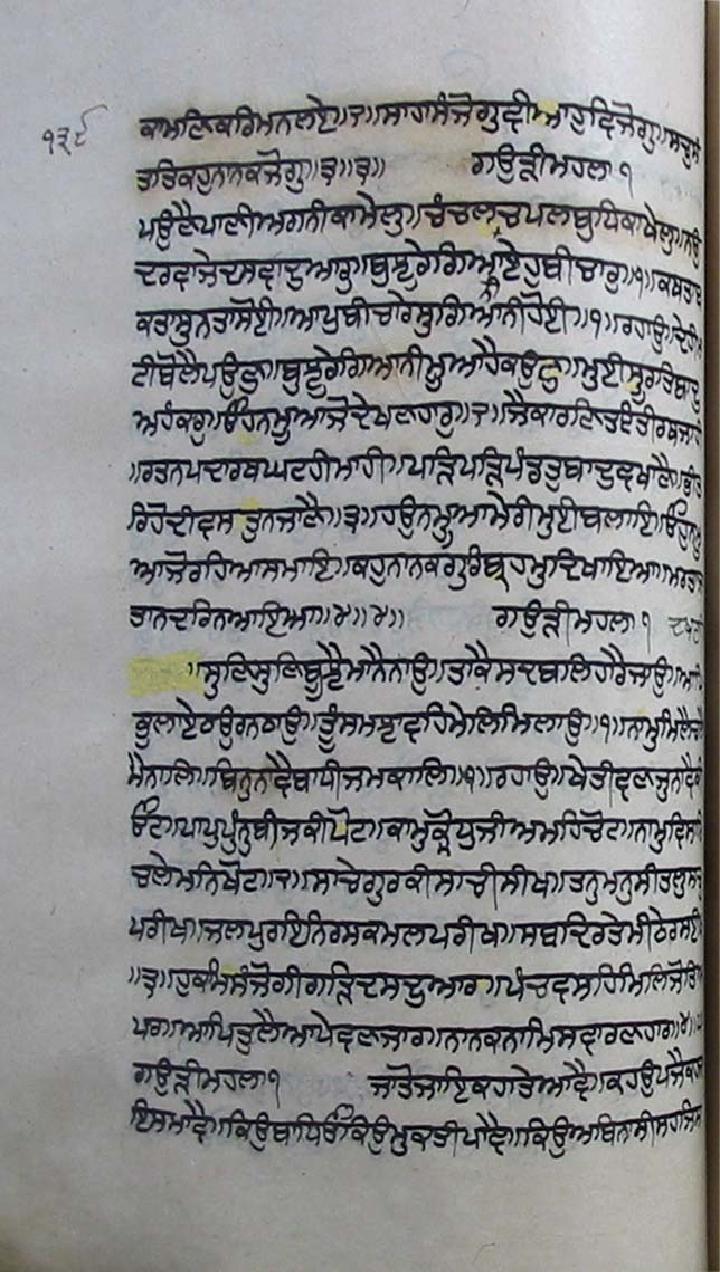 ੧੩੯
ਕਾਮਣਿਕਰਿਮਨਲਏ॥੨॥ਸਾਹਾਸੰਜੋਗੁਵੀਆਹੁਵਿਜੋਗੁ॥ਸਚੁਸੰ
ਤਤਿਕਹੁਨਾਨਕਜੋਗੁ॥੩॥੩॥ ਗਉੜੀਮਹਲਾ੧
ਪਉਣੈਪਾਣੀਅਗਨੀਕਾਮੇਲੁ॥ਚੰਚਲਚਪਲਬੁਧਿਕਾਖੇਲੁ॥ਨਉ
ਦਰਵਾਜੇਦਸਵਾਦੁਆਰੁ॥ਬੁਝੁਰੇਗਿਆਨੀਏਹੁਬੀਚਾਰੁ॥੧॥ਕਥਤਾਬ
ਕਤਾਸੁਨਤਾਸੋਈ॥ਆਪੁਬੀਚਾਰੇਸੁਗਿਆਨੀਹੋਈ॥੧॥ਰਹਾਉ॥ਦੇਹੀਮਾ
ਟੀਬੋਲੈਪਉਣੁ॥ਬੁਝੁਰੇਗਿਆਨੀਮੂਆਹੈਕਉਣੁ॥ਮੁਈਸੁਰਤਿਬਾਦੁ
ਅਹੰਕਾਰੁ॥ਓਹੁਨਮੂਆਜੋਦੇਖਣਹਾਰੁ॥੨॥ਜੈਕਾਰਣਿਤਟਿਤੀਰਥਜਾਹੀ
॥ਰਤਨਪਦਾਰਥਘਟਹੀਮਾਹੀ॥ਪੜਿਪੜਿਪੰਡਤੁਬਾਦੁਵਖਾਣੈ॥ਭੀਤ
ਰਿਹੋਦੀਵਸਤੁਨਜਾਣੈ॥੩॥ਹਉਨਮੂਆਮੇਰੀਮੁਈਬਲਾਇ॥ਓਹੁਨਮੂ
ਆਜੋਰਹਿਆਸਮਾਇ॥ਕਹੁਨਾਨਕਗੁਰਿਬ੍ਰਹਮੁਦਿਖਾਇਆ॥ਮਰਤਾਜਾ
ਤਾਨਦਰਿਨਆਇਆ॥੪॥੪॥ ਗਉੜੀਮਹਲਾ੧ ਦਖਣੀ
॥ਸੁਣਿਸੁਣਿਬੂਝੈਮਾਨੈਨਾਉ॥ਤਾਕੈਸਦਬਲਿਹਾਰੈਜਾਉ॥ਆਪਿ
ਭੁਲਾਏਠਉਰਨਠਾਉ॥ਤੂੰਸਮਝਾਵਹਿਮੇਲਿਮਿਲਾਉ॥੧॥ਨਾਮੁਮਿਲੈਚਲੈ
ਮੈਨਾਲਿ॥ਬਿਨੁਨਾਵੈਬਾਧੀਜਮਕਾਲਿ॥੧॥ਰਹਾਉ॥ਖੇਤੀਵਣਜੁਨਾਵੈਕੀ
ਓਟ॥ਪਾਪੁਪੁੰਨੁਬੀਜਕੀਪੋਟ॥ਕਾਮੁਕ੍ਰੋਧੁਜੀਅਮਹਿਚੋਟ॥ਨਾਮੁਵਿਸਾਰਿ
ਚਲੇਮਨਿਖੋਟ॥੨॥ਸਾਚੇਗੁਰਕੀਸਾਚੀਸੀਖ॥ਤਨੁਮਨੁਸੀਤਲੁਸਾਚ
ਪਰੀਖ॥ਜਲਪੁਰਾਇਨਿਰਸਕਮਲਪਰੀਖ॥ਸਬਦਿਰਤੇਮੀਠੇਰਸਈਖ
॥੩॥ਹੁਕਮਿਸੰਜੋਗੀਗੜਿਦਸਦੁਆਰ॥ਪੰਚਵਸਹਿਮਿਲਿਜੋਤਿਅ
ਪਾਰ॥ਆਪਿਤੁਲੈਆਪੇਵਣਜਾਰ॥ਨਾਨਕਨਾਮਿਸਵਾਰਣਹਾਰ॥੪॥੫
ਗਉੜੀਮਹਲਾ੧ ਜਾਤੋਜਾਇਕਹਾਤੇਆਵੈ॥ਕਹਉਪਜੈਕਹਜਾ
ਇਸਮਾਵੈ॥ਕਿਉਬਾਧਿਓਕਿਉਮੁਕਤੀਪਾਵੈ॥ਕਿਉਅਬਿਨਾਸੀਸਹਜਿਸ